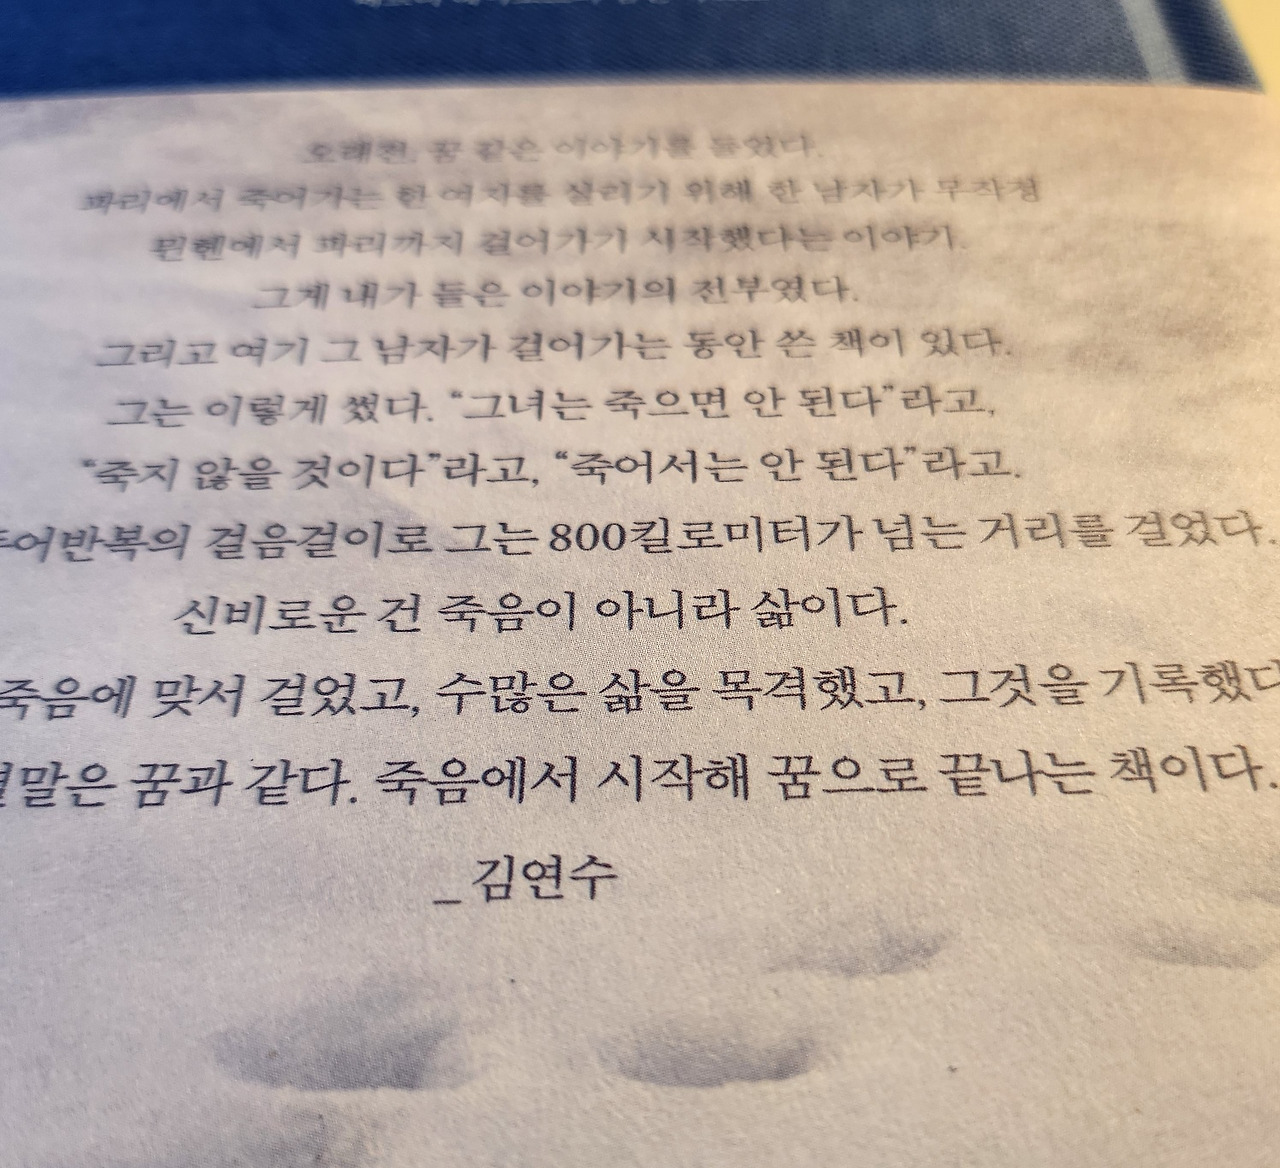 오래전, 꿈 같은 이야기를 들었다.
파리에서 죽어가는 한 여자를 살리기 위해 한 남자가 무작정
뮌헨에서 파리까지 걸어가기 시작했다는 이야기.
그게 내가 들은 이야기의 전부였다.
그리고 여기 그 남자가 걸어가는 동안 쓴 책이 있다.
그는 이렇게 썼다. “그녀는 죽으면 안 된다”라고,
“죽지 않을 것이다”라고, “죽어서는 안 된다”라고.
걸음걸이로 그는 800킬로미터가 넘는 거리를 걸었다.
신비로운 건 죽음이 아니라 삶이다.
죽음에 맞서 걸었고, 수많은 삶을 목격했고, 그것을 기록했다
꿈과 같다. 죽음에서 시작해 꿈으로 끝나는 책이다.
_ 김연수